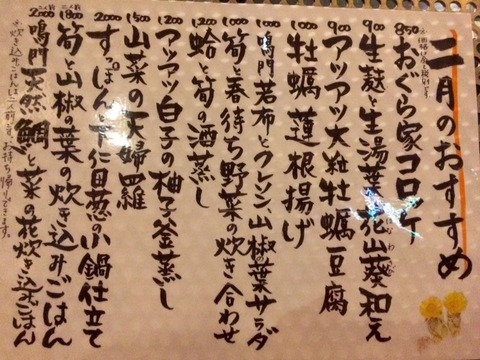 二月のおすすめ
850 おぐら家コロッケ
900 生麩と生湯葉の花山葵和え
900 アツアツ大粒牡蠣豆腐
1000 牡蠣蓮根揚げ
1000 鳴門若布とクレソン、山椒の葉サラダ
1000 筍と春待ち野菜の炊き合わせ
1200 蛤と筍の酒蒸し
1200 アツアツ白子の柚子釜蒸し
1500 山菜の天婦羅
2000 すっぽんと下仁田葱の小鍋仕立て
1800 筍と山椒の葉の炊き込みごはん
2000 鳴門天然鯛と菜の花炊き込みごはん
※炊き込みごはんは二人前より。お持ち帰りできます。